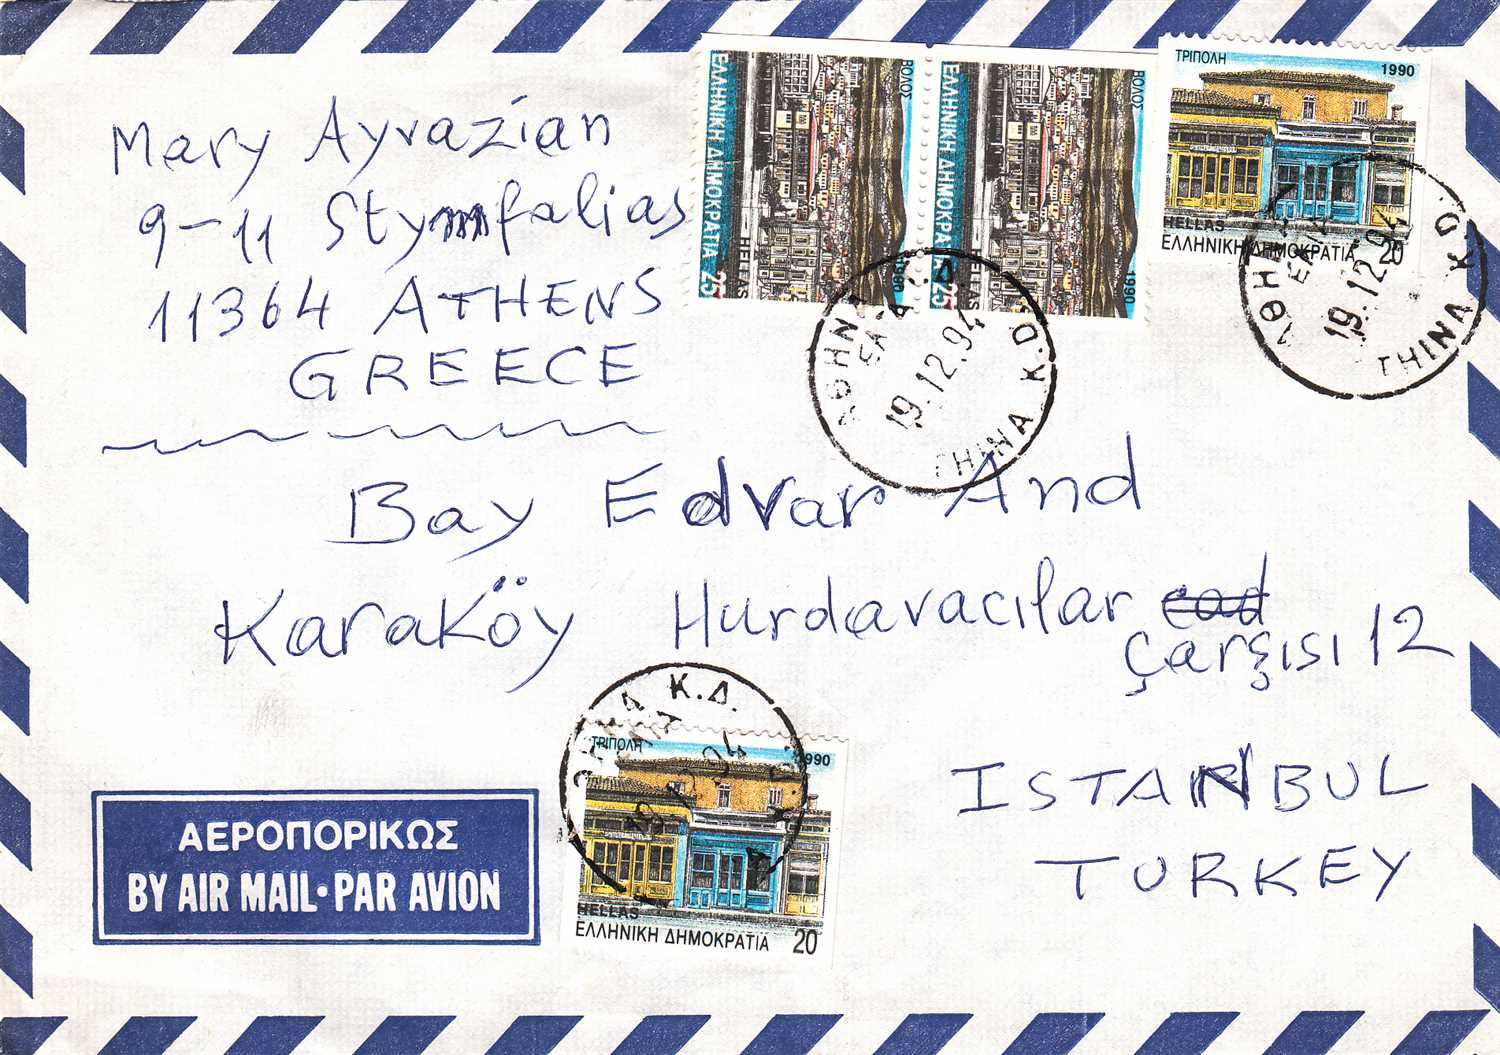 Mary Ayvazian
9-11 Stymfalias
11364 ATHENS
GREECE
ΒΟΛΟΣ
ΕΛΛΗΝΙΚΗ ΔΗΜΟΚΡΑΤΙΑ 25
HELLAS
1990
ΒΟΛΟΣ
ΕΛΛΗΝΙΚΗ ΔΗΜΟΚΡΑΤΙΑ 25
HELLAS
1990
ΤΡΙΠΟΛΗ 1990
HELLAS
ΕΛΛΗΝΙΚΗ ΔΗΜΟΚΡΑΤΙΑ 20
ΑΘΗΝΑ Κ.Δ.
19.12.94
THINA
ΑΘΗΝΑ Κ.Δ.
19.12.94
THINA
Bay Edvar And
Karaköy Hurdavacılar
Çarşısı 12
ISTANBUL
TURKEY
Κ.Δ.
ΤΡΙΠΟΛΗ 1990
HELLAS
ΕΛΛΗΝΙΚΗ ΔΗΜΟΚΡΑΤΙΑ 20
ΑΕΡΟΠΟΡΙΚΩΣ
BY AIR MAIL·PAR AVION